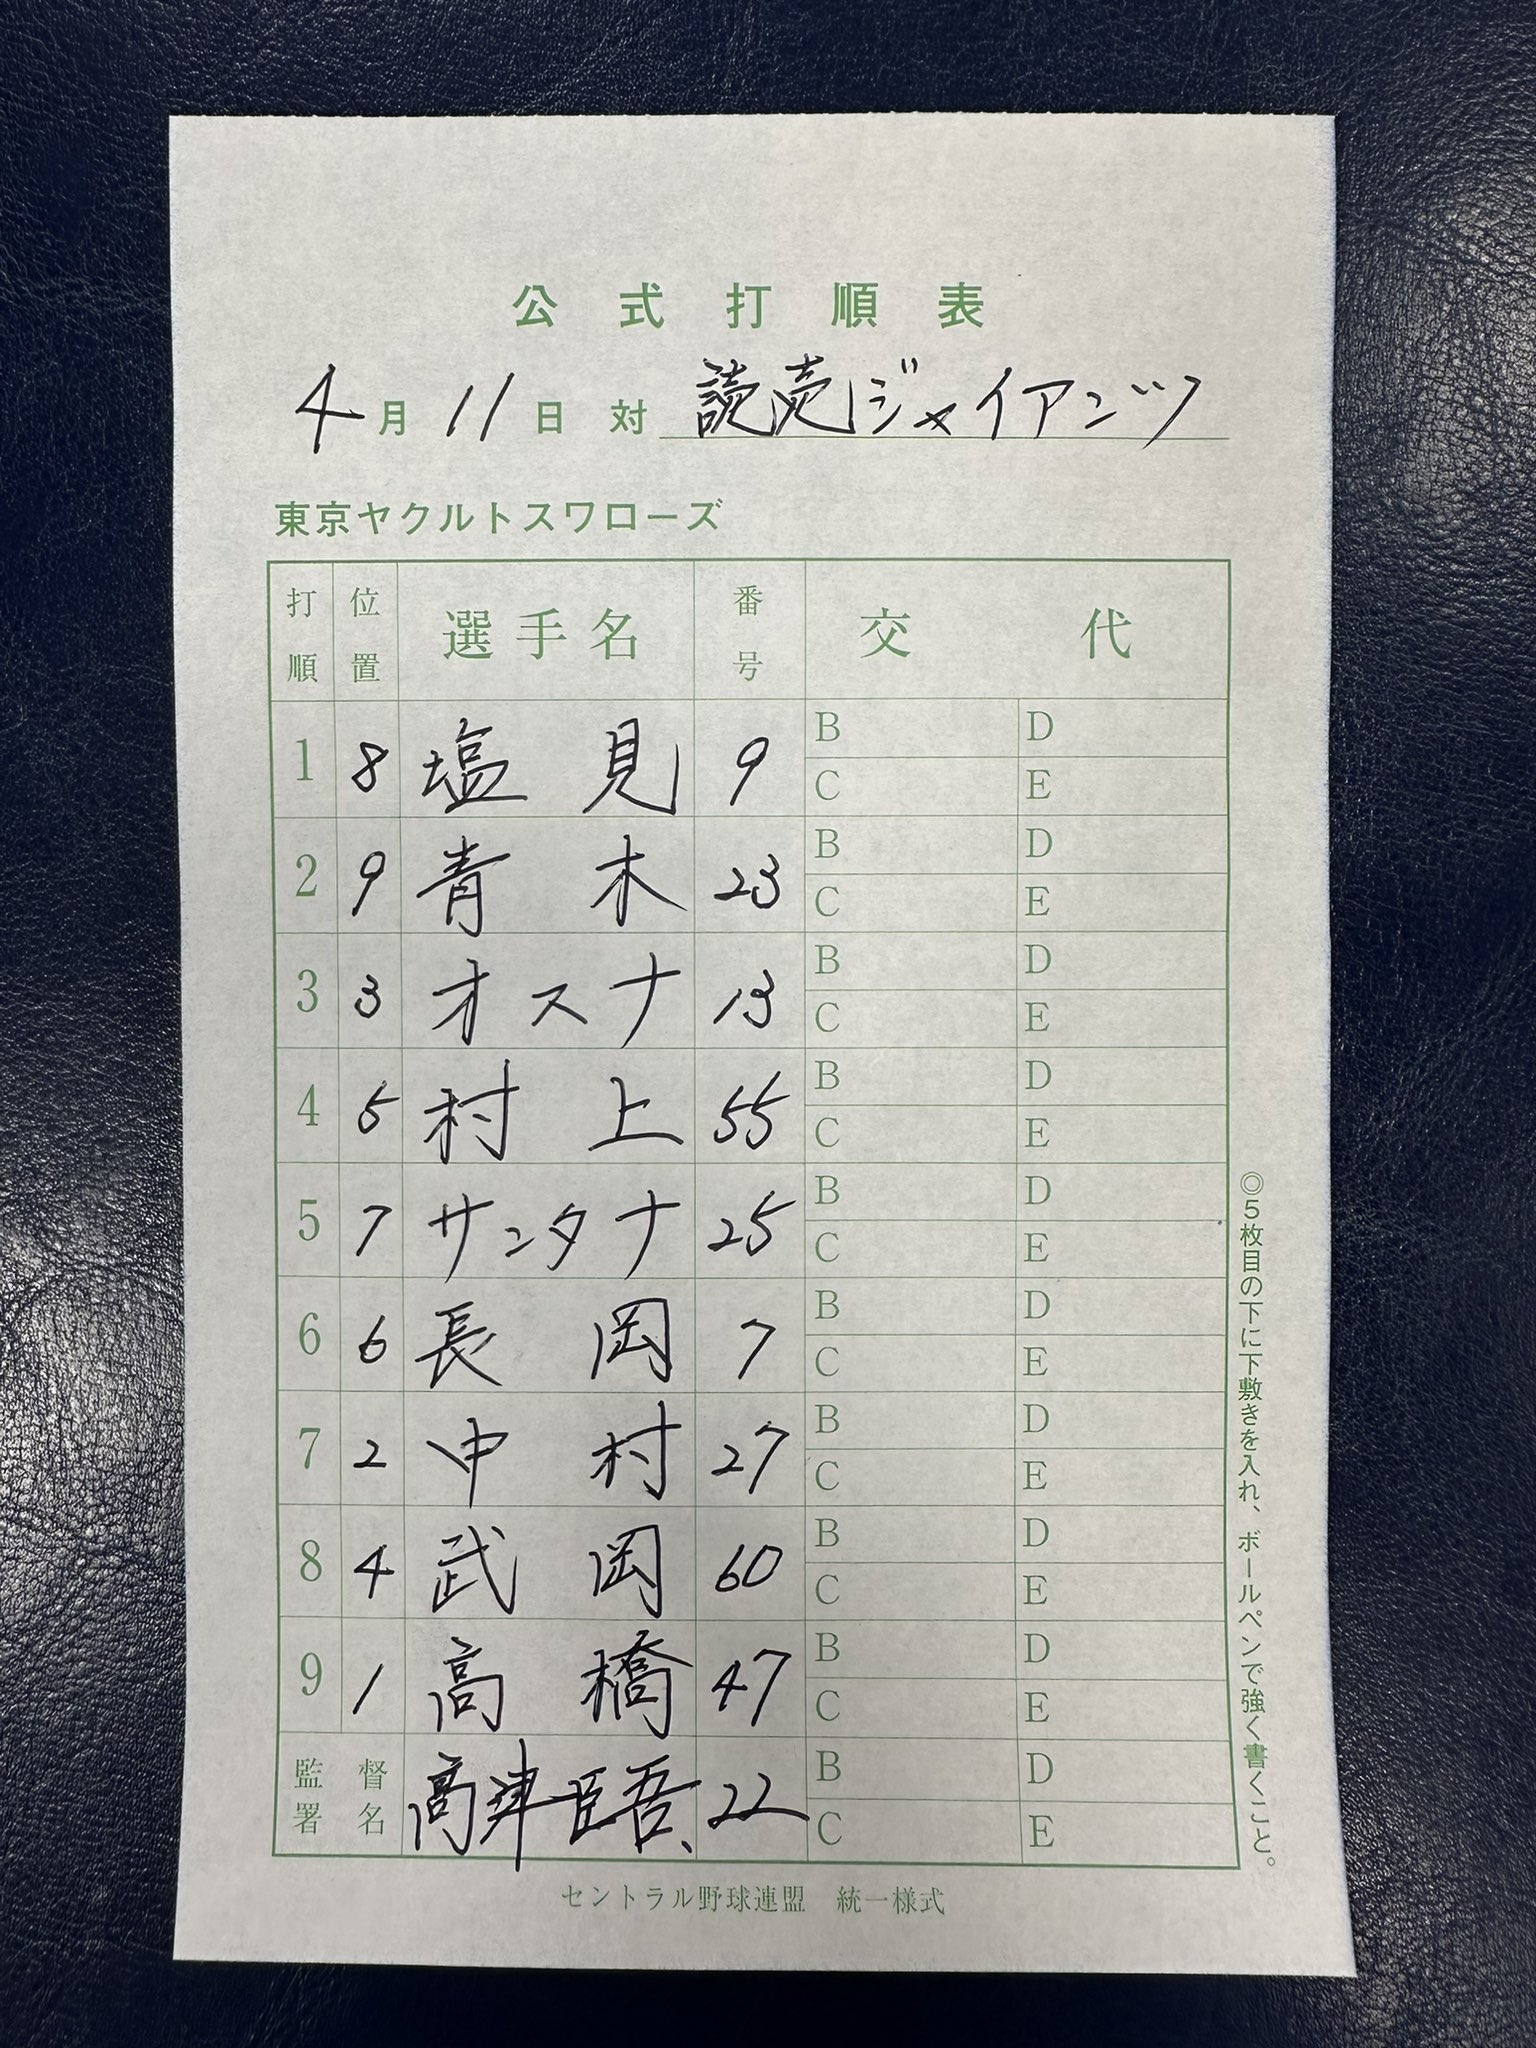 公式打順表
4月11日 対 読売ジャイアンツ
東京ヤクルトスワローズ
打順 位置 選手名 番号 交代
1 8 塩見 9 B D C E
2 9 青木 23 B D C E
3 3 オスナ 13 B D C E
4 5 村上 55 B D C E
5 7 サンタナ 25 B D C E
6 6 長岡 7 B D C E
7 2 中村 27 B D C E
8 4 武岡 60 B D C E
9 1 高橋 47 B D C E
監督署名 高津臣吾 22 B D C E
セントラル野球連盟 統一様式
◎5枚目の下に下敷きを入れ、ボールペンで強く書くこと。